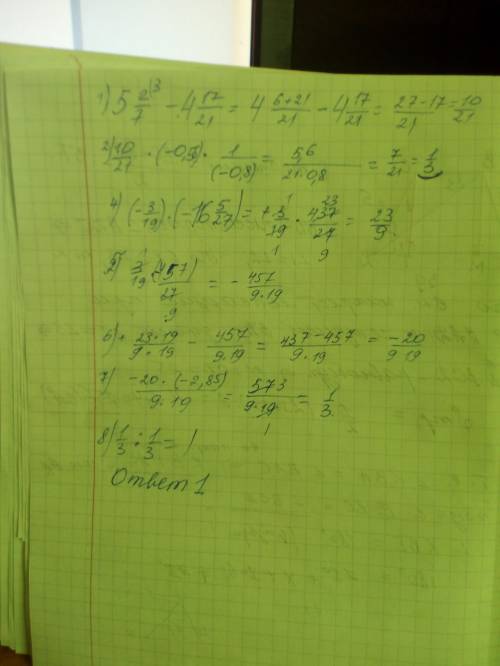 1) 5 2/7 - 4 17/21 = 4 6+21/21 - 4 17/21 = 27-17/21 = 10/21
2) 10/21 · (-0,56) · 1/(-0,8) = 5,6/21·0,8 = 7/21 = 1/3
4) (-3/19) · (-16 5/27) = + 3/19 · 437/27 = 23/9
3/19 · 457/27 = - 457/9·19
6) 23·19/9·19 - 457/9·19 = 437-457/9·19 = -20/9 19
7) -20·(-2,85)/9·19 = 573/9·19 = 1/3
8) 1/3 : 1/3 = 1
Ответ 1